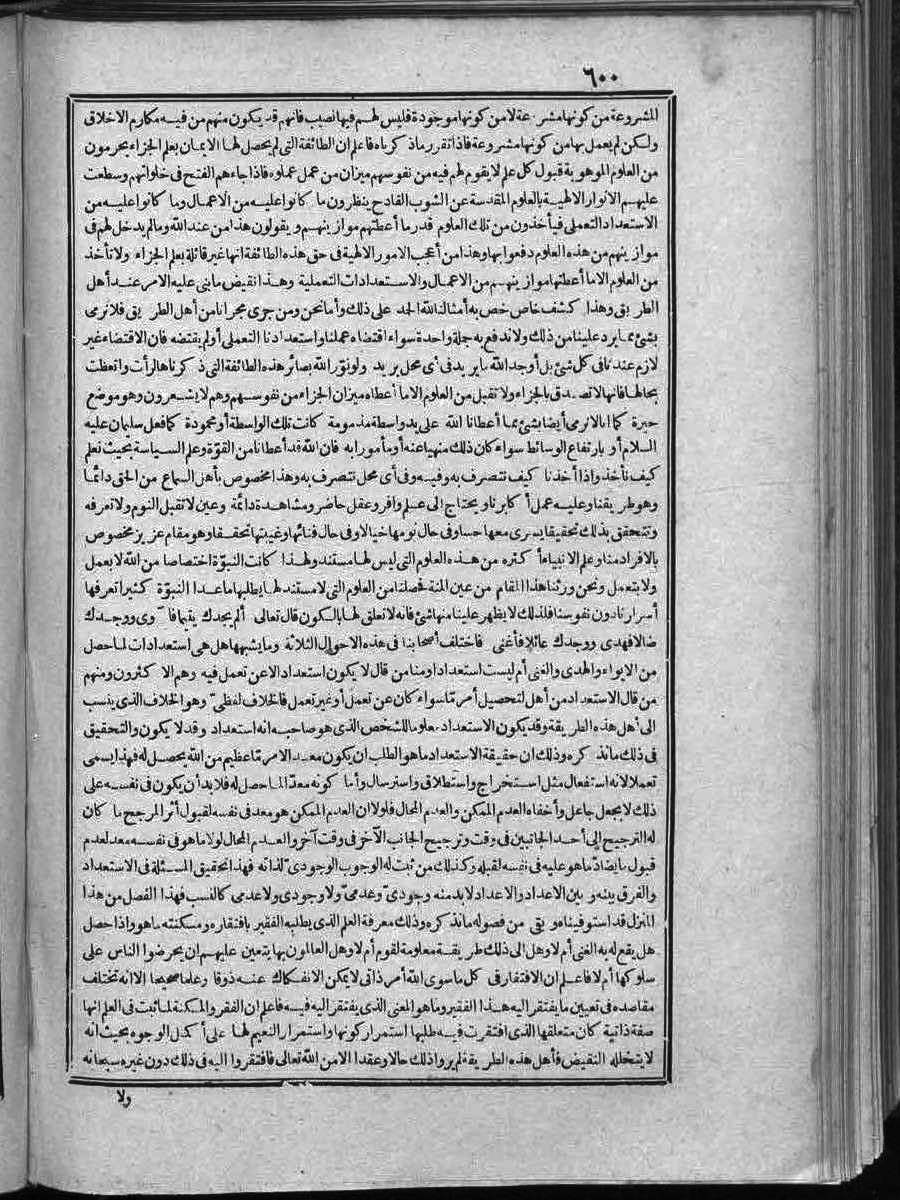 ٦٠٠
المشروعة من كونها مشروعة لا من كونها موجودة فليس لهم فيها نصيب فانهم قد يكون منهم من فيه مكارم الاخلاق
ولكن لم يعمل بها من كونها مشروعة فاذا تقرر ما ذكرناه فاعلم ان الطائفة التى لم يحصل لها الايمان بعلم الجزاء يحرمون
من العلوم الموهوبة قبول كل علم لا يقوم لهم فيه من نفوسهم ميزان من عمل عملوه فاذا جاءهم الفتح فى خلواتهم وسطعت
عليهم الانوار الالهية بالعلوم المقدسة عن الشوب القادح ينظرون ما كانوا عليه من الاعمال وما كانوا عليه من
الاستعداد التعملى فيأخذون من تلك العلوم قدر ما أعطتهم موازينهم ويقولون هذا من عند الله وما لم يدخل لهم فى
موازينهم من هذه العلوم دفعوا بها وهذا من أعجب الامور الالهية فى حق هذه الطائفة انها غير قائلة بعلم الجزاء ولا تأخذ
من العلوم الا ما أعطتها موازينهم من الاعمال والاستعدادات التعملية وهذا نقيض ما بنى عليه الامر عند أهل
الطريق وهذا كشف خاص خص به أمثالنا لله الحمد على ذلك وأما نحن ومن جرى مجرانا من أهل الطريق فلا نرمى
بشئ مما يرد علينا من ذلك ولا ندفع به جملة واحدة سواء اقتضاه عملنا واستعدادنا التعملى أو لم يقتضه فان الاقتضاء غير
لازم عندنا فى كل شئ بل أوجد الله ما يريد فى أى محل يريد ولو نوّر الله بصائر هذه الطائفة التى ذكرناها لرأت واتعظت
بحالها فانها لا تصدق بالجزاء ولا تقبل من العلوم الا ما أعطاه ميزان الجزاء من نفوسهم وهم لا يشعرون وهو موضع
حيرة كما انا لا نرمى أيضا بشئ مما أعطانا الله على يد واسطة مذمومة كانت تلك الواسطة أو محمودة كما فعل سليمان عليه
السلام أو بارتفاع الوسائط سواء كان ذلك منهيا عنه أو مأمورا به فان الله قد أعطانا من القوّة وعلم السياسة بحيث نعلم
كيف نأخذ واذا أخذنا كيف نتصرف به وفيه وفى أى محل نتصرف به وهذا مخصوص بأهل السماع من الحق دائما
وهو طريقنا وعليه عمل أكابرنا ويحتاج الى علم وافر وعقل حاضر ومشاهدة دائمة وعين لا تقبل النوم ولا تعرفه
وتتحقق بذلك تحقيقا يسرى معها حسا وفى حال نومها خيالا وفى حال فنائها وغيبتها تحققا وهو مقام عزيز مخصوص
بالافراد منا وعلم الانبياء أكثره من هذه العلوم التى ليس لها مستند ولهذا كانت النبوّة اختصاصا من الله لا بعمل
ولا بتعمل ونحن ورثنا هذا المقام من عين المنة فحصلنا من العلوم التى لا مستند لها يطلبها ما عدا النبوّة كثيرا تعرفها
أسرارنا دون نفوسنا فلذلك لا يظهر علينا منها شئ فانه لا تعلق لها بالكون قال تعالى ألم يجدك يتيما فآوى ووجدك
ضالا فهدى ووجدك عائلا فأغنى فاختلف أصحابنا فى هذه الاحوال الثلاثة وما يشبهها هل هى استعدادات لما حصل
من الايواء والهدى والغنى أم ليست استعدادا ومنا من قال لا يكون استعدادا الا عن تعمل فيه وهم الاكثرون ومنهم
من قال الاستعداد من أهل لتحصيل أمر ما سواء كان عن تعمل أو غير تعمل فالخلاف لفظىّ وهو الخلاف الذى ينسب
الى أهل هذه الطريقة وقد يكون الاستعداد معلوما للشخص الذى هو صاحبه انه استعداد وقد لا يكون والتحقيق
فى ذلك ما نذكره وذلك ان حقيقة الاستعداد ما هو الطلب ان يكون معدا لامر ما عظيم من الله يحصل له فهذا يسمى
تعملا لانه استفعال مثل استخراج واستطلاق واسترسال وأما كونه معدّا لما حصل له فلا بد أن يكون فى نفسه على
ذلك لا بجعل جاعل وأخفاه العدم الممكن والعدم المحال فلولا ان العدم الممكن هو معد فى نفسه لقبول أثر المرجح ما كان
له الترجيح الى أحد الجانبين فى وقت وترجيح الجانب الآخر فى وقت آخر والعدم المحال لولا ما هو فى نفسه معد لعدم
قبول ما يضادّ ما هو عليه فى نفسه لقبله وكذلك من ثبت له الوجوب الوجودىّ لذاته فهذا تحقيق المسئلة فى الاستعداد
والفرق بينه وبين الاعداد والاعداد لا بد منه وجودىّ وعدمىّ ولا وجودى ولا عدمى كالنسب فهذا الفصل من هذا
المنزل قد استوفيناه وبقى من فصوله ما نذكره وذلك معرفة العلم الذى يطلبه الفقير بافتقاره ومسكنته ما هو واذا حصل
هل يقع له به الغنى أم لا وهل الى ذلك طريقة معلومة لقوم أم لا وهل العالمون بها يتعين عليهم ان يحرضوا الناس على
سلوكها أم لا فاعلم ان الافتقار فى كل ما سوى الله أمر ذاتى لا يمكن الانفكاك عنه ذوقا وعلما صحيحا الا انه تختلف
مقاصده فى تعيين ما يفتقر اليه هذا الفقير وما هو المعنى الذى يفتقر اليه فيه فاعلم ان الفقر والمسكنة لما ثبت فى العلم انها
صفة ذاتية كان متعلقها الذى افتقرت فيه طلبها استمرار كونها واستمرار النعيم لها على أكمل الوجوه بحيث انه
لا يتخلله النقيض فأهل هذه الطريقة لم يروا ذلك حالا وعقدا الا من الله تعالى فافتقروا اليه فى ذلك دون غيره سبحانه
ولا